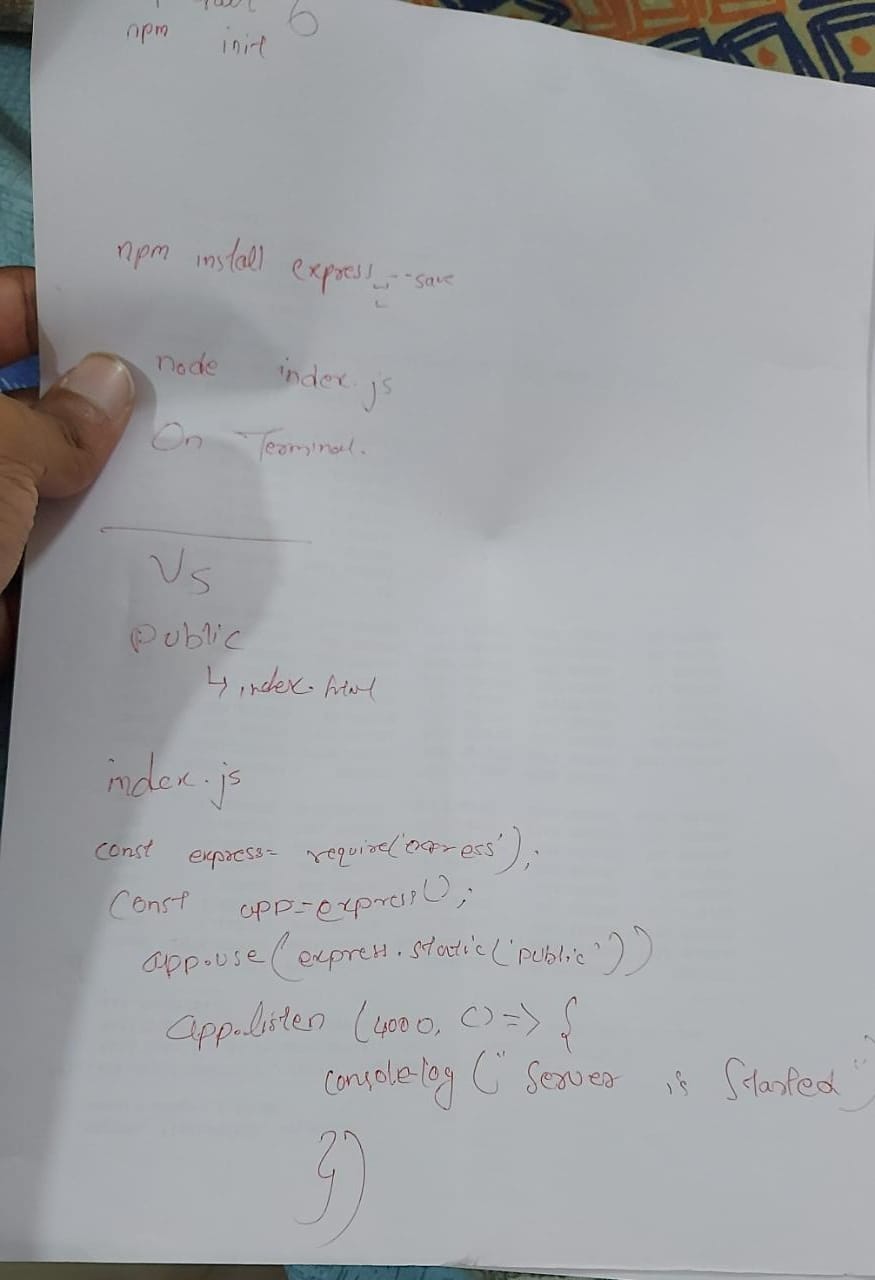 6
npm init
npm install express --save
node index.js
On Terminal.
VS
public
↳ index.html
index.js
const express= require('express');
const app=express();
app.use(express.static('public'))
app.listen (4000, ()=> {
console.log (" Server is Started ")
})